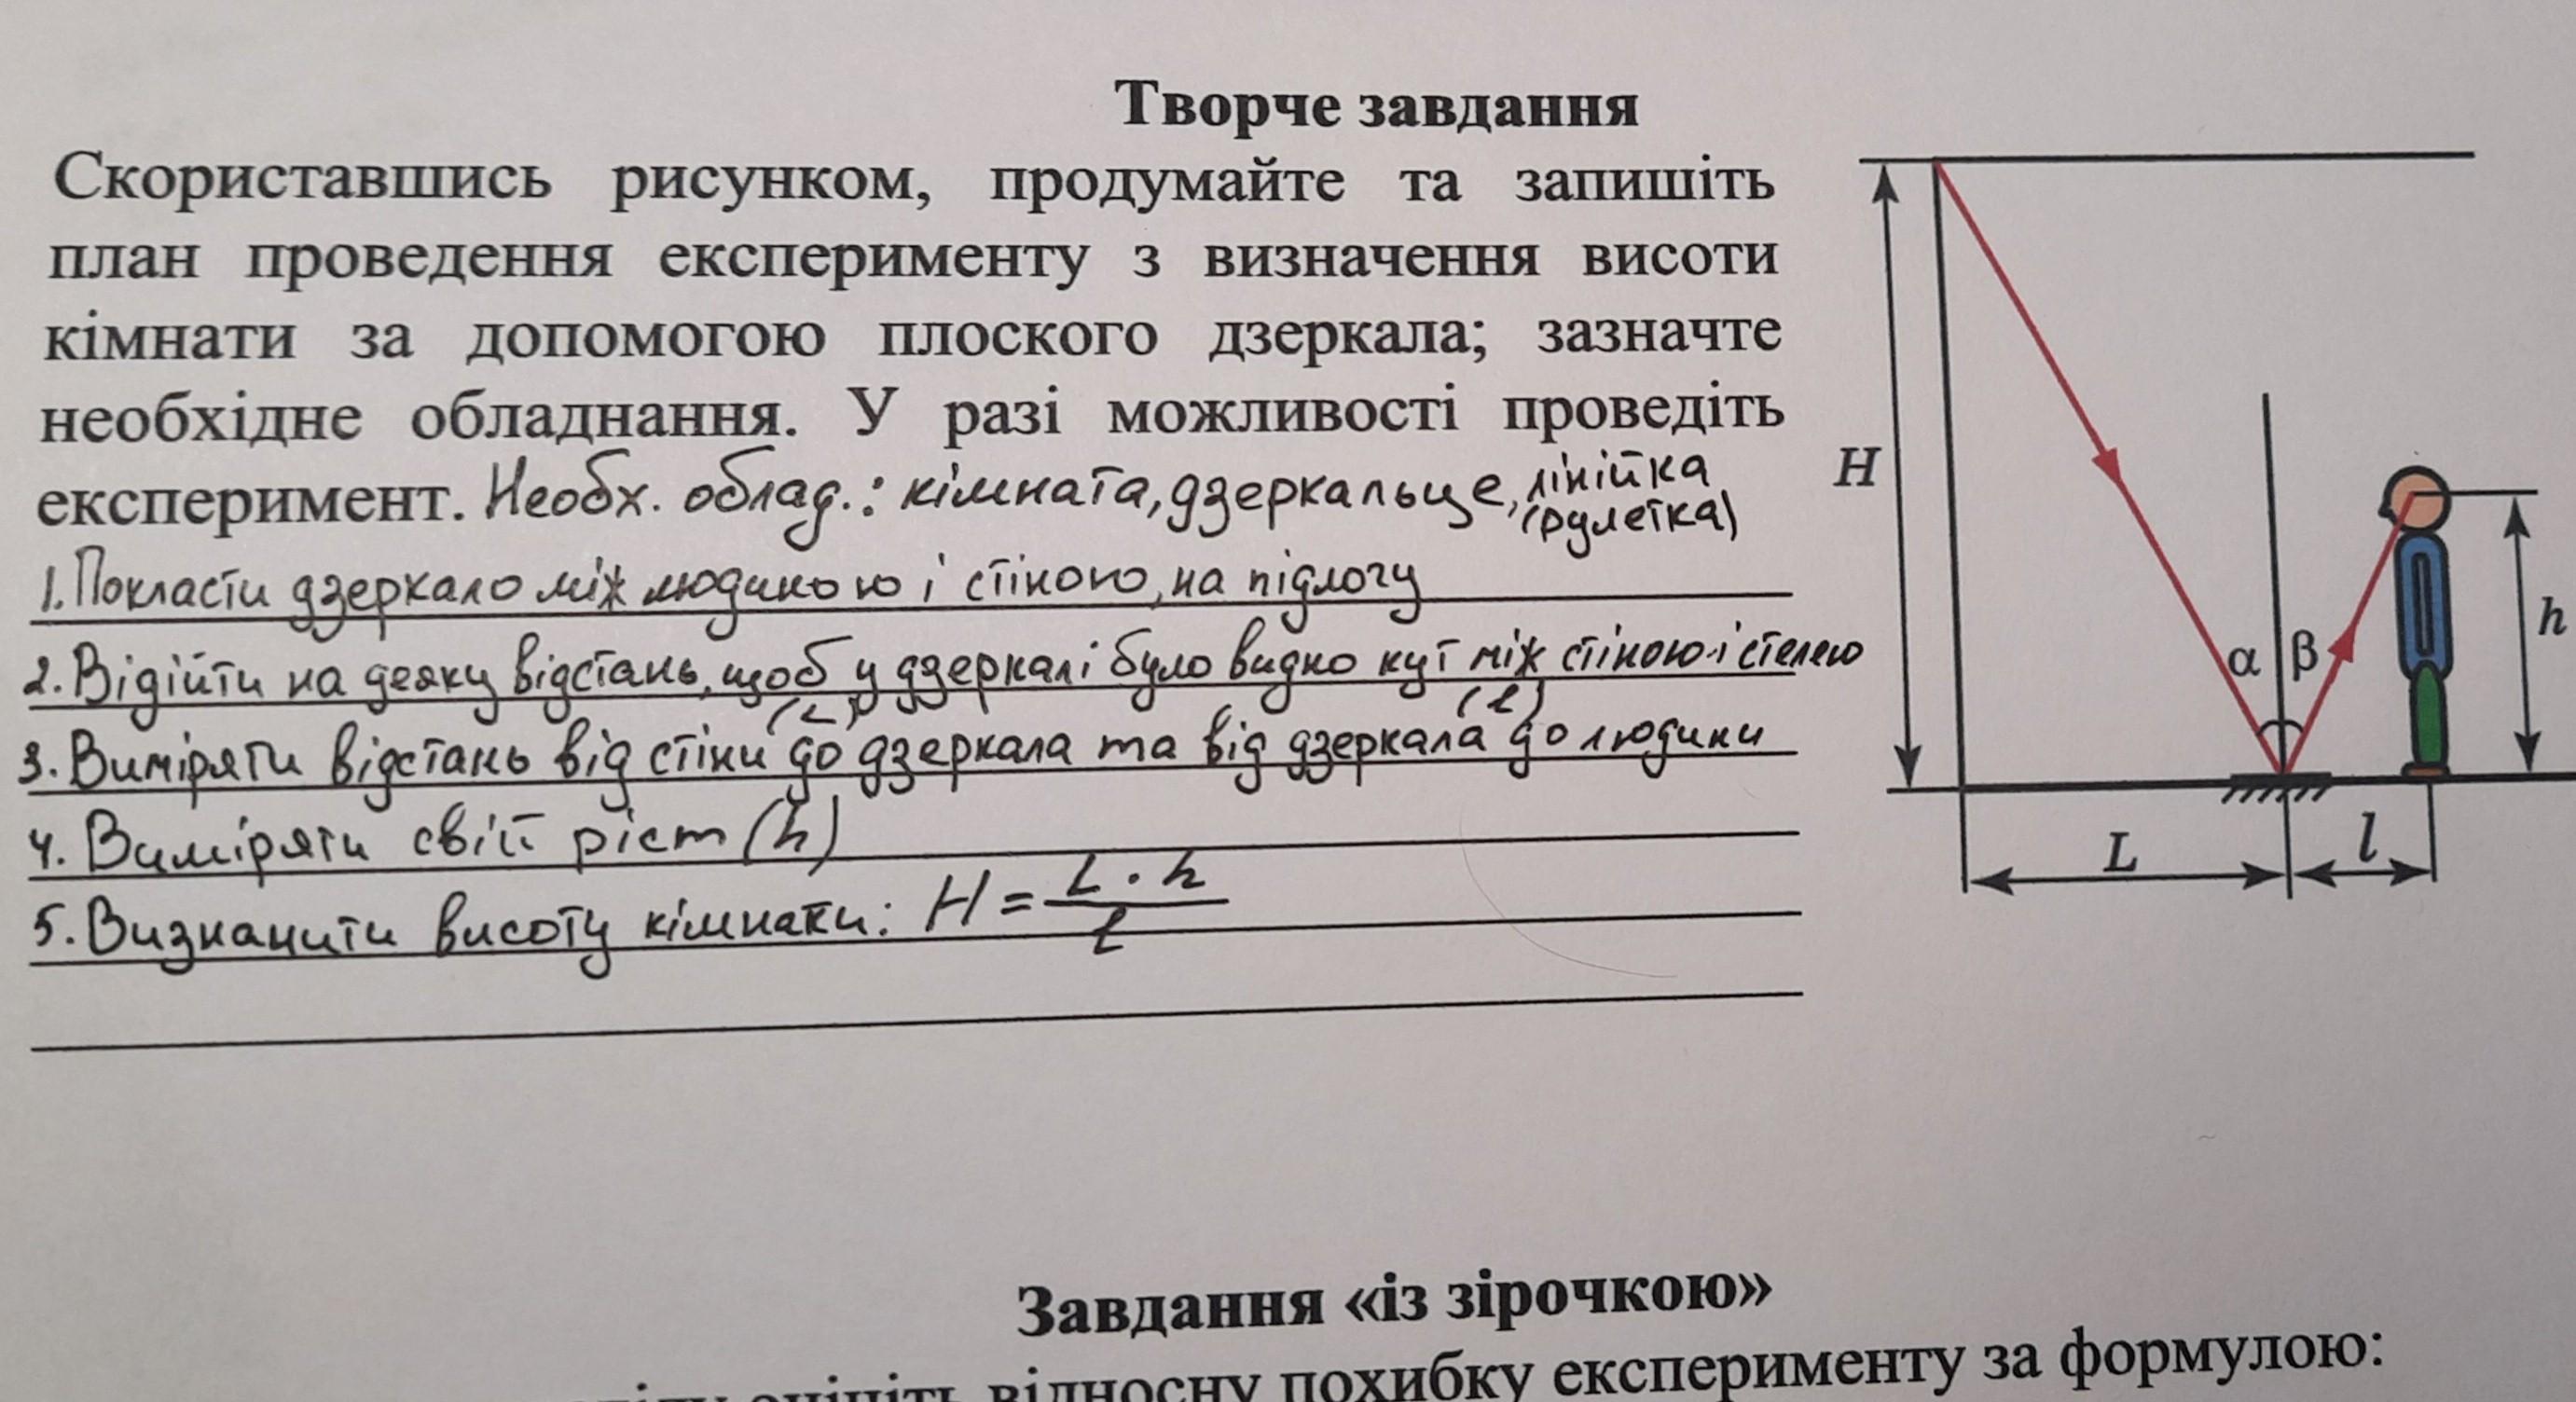 Творче завдання
Скориставшись рисунком, продумайте та запишіть
план проведення експерименту з визначення висоти
кімнати за допомогою плоского дзеркала; зазначте
необхідне обладнання. У разі можливості проведіть
експеримент. Необх. облад.: кімната, дзеркальце, лінійка
(рулетка)
1. Покласти дзеркало між людиною і стіною, на підлогу
2. Відійти на деяку відстань, щоб у дзеркалі було видно кут між стіною і стелею
(L) (l)
3. Виміряти відстань від стіни до дзеркала та від дзеркала до людини
4. Виміряти свій ріст (h)
5. Визначити висоту кімнати: H = L · h / l
H
h
α β
L
l
Завдання «із зірочкою»
оцініть відносну похибку експерименту за формулою: